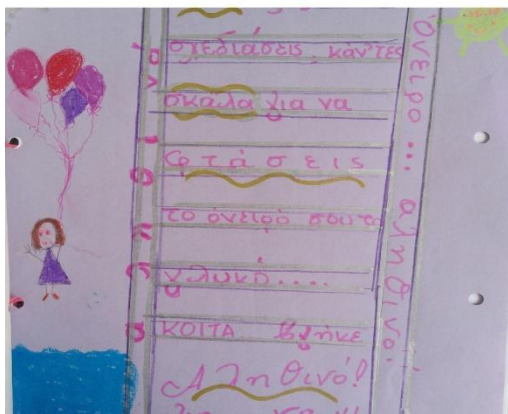 σχεδιάσεις κάν'τες
σκαλα για να
φτάσεις
το όνειρό σου το
γλυκό....
ΚΟΙΤΑ βγήκε
Αληθινό!
Όνειρο... αληθινό!